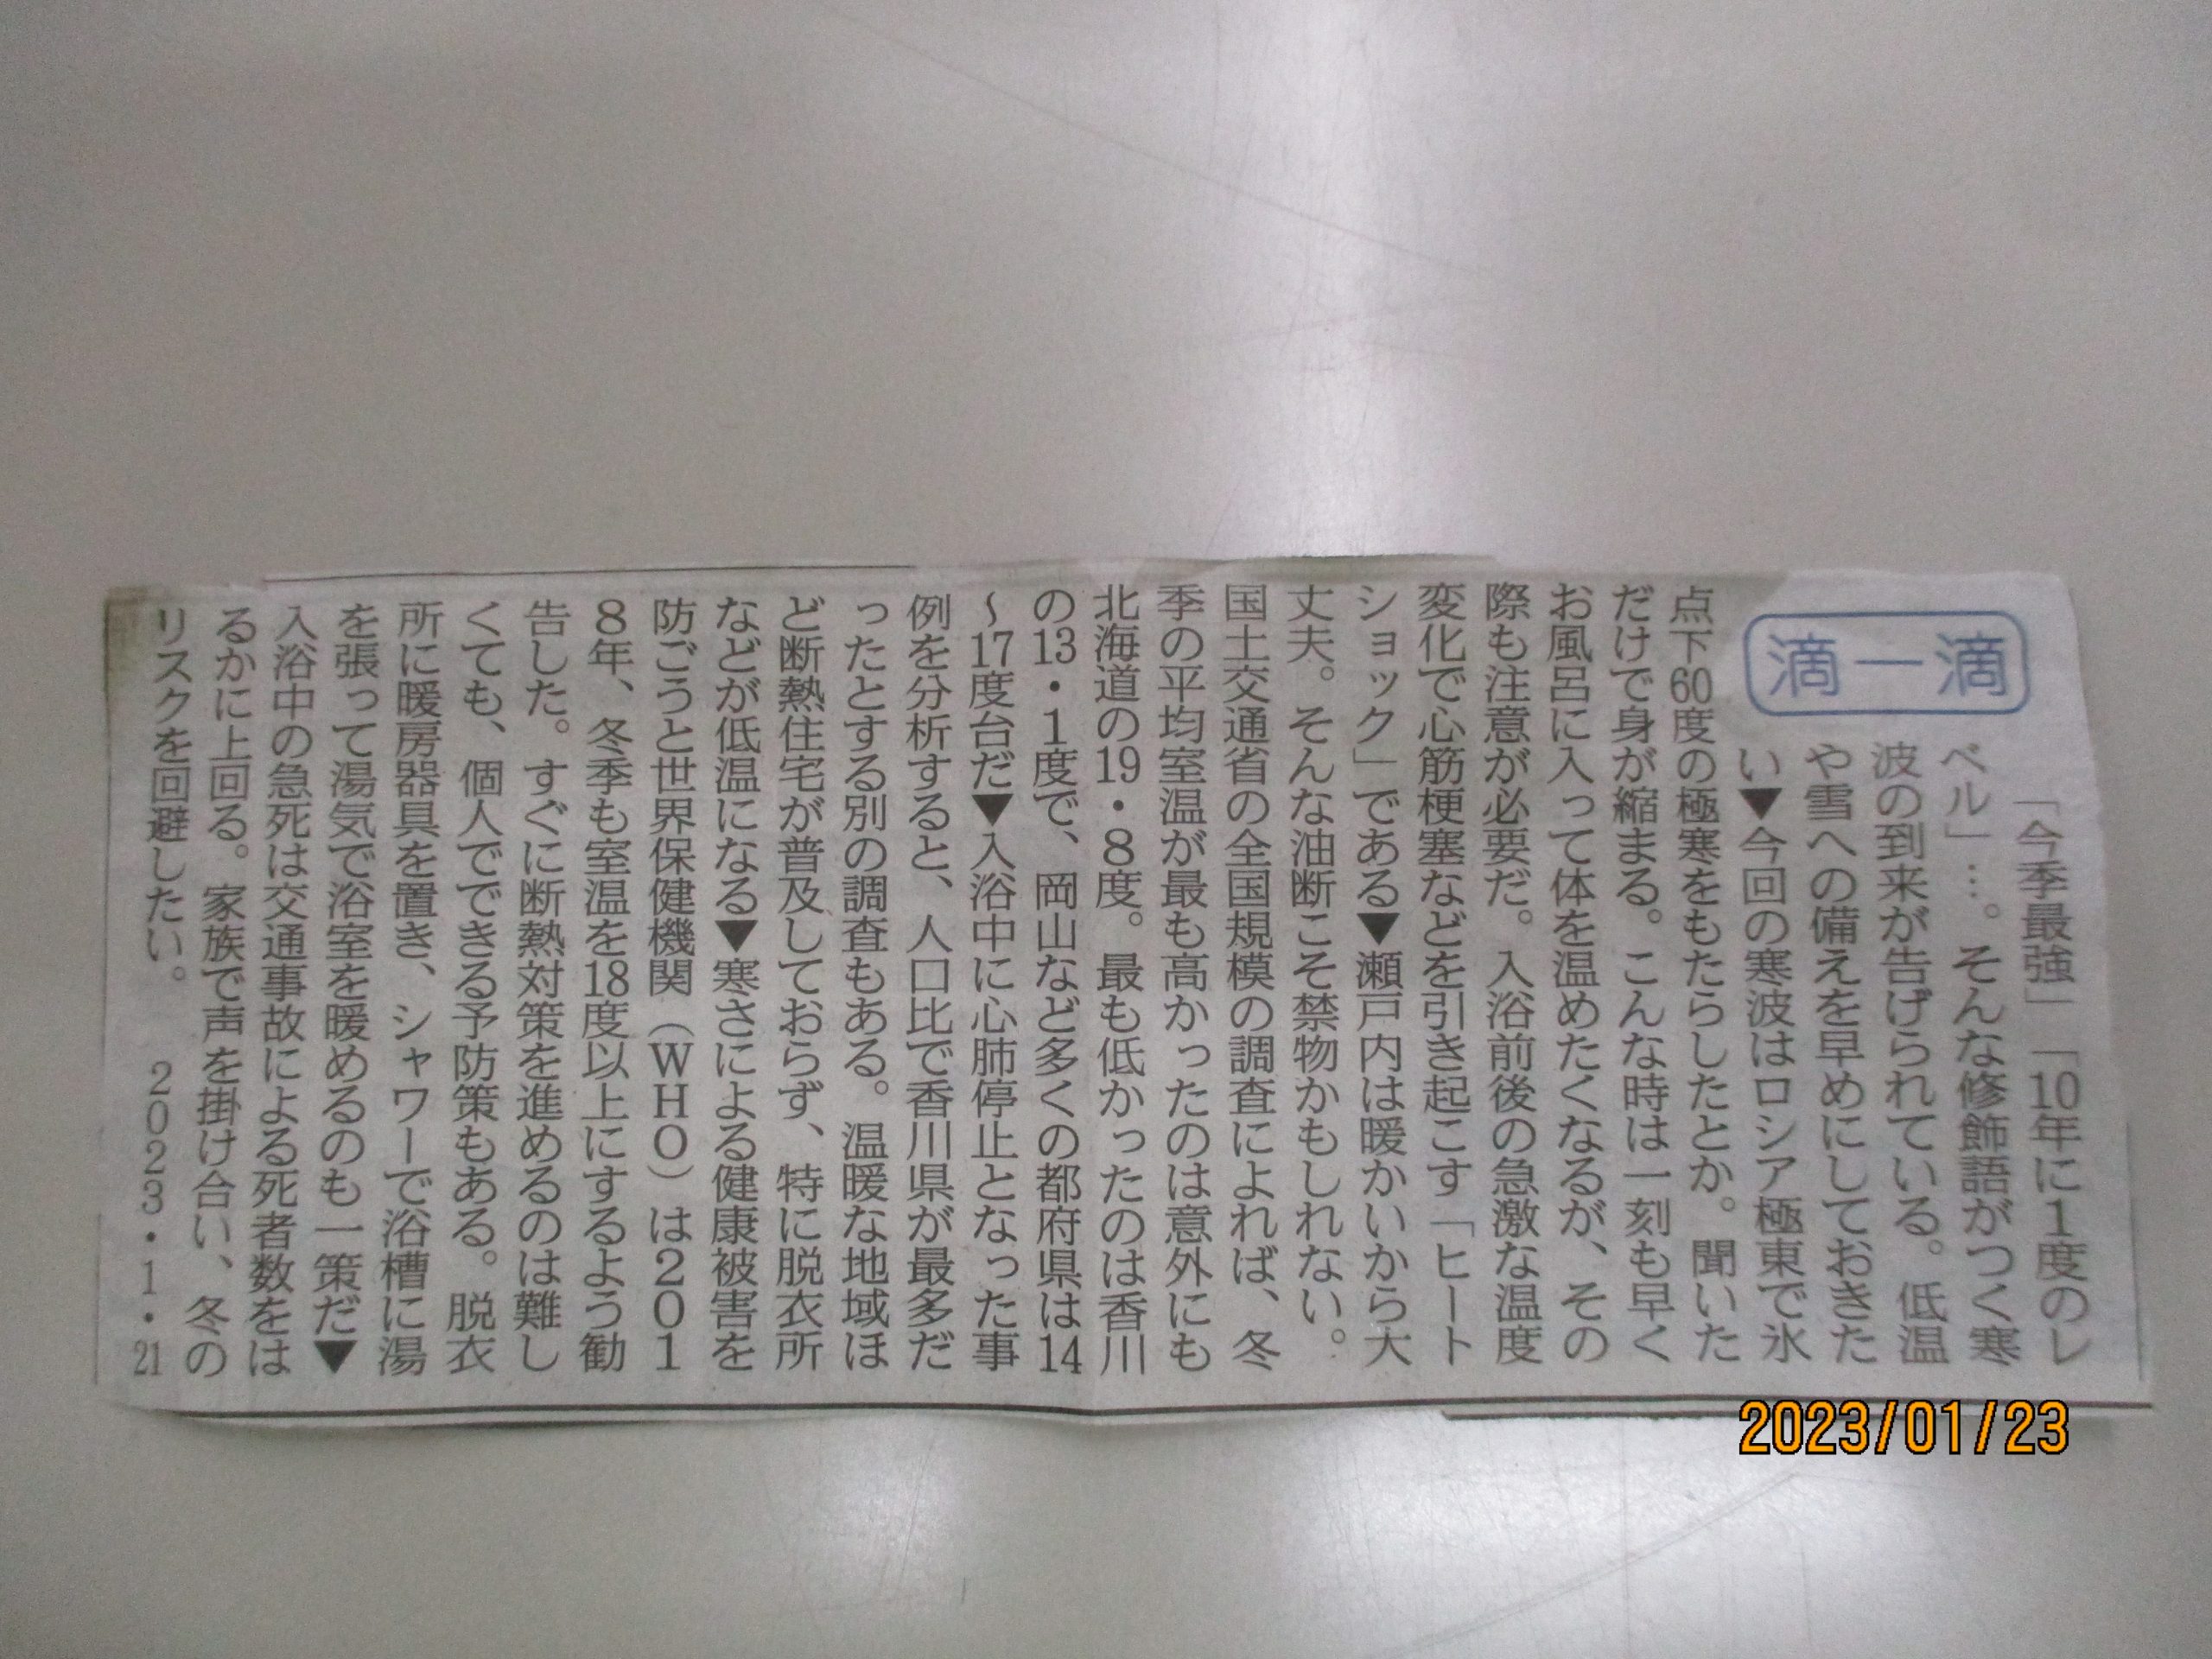 滴一滴
「今季最強」「10年に1度のレ
ベル」…。そんな修飾語がつく寒
波の到来が告げられている。低温
や雪への備えを早めにしておきた
い▼今回の寒波はロシア極東で氷
点下60度の極寒をもたらしたとか。聞いた
だけで身が縮まる。こんな時は一刻も早く
お風呂に入って体を温めたくなるが、その
際も注意が必要だ。入浴前後の急激な温度
変化で心筋梗塞などを引き起こす「ヒート
ショック」である▼瀬戸内は暖かいから大
丈夫。そんな油断こそ禁物かもしれない。
国土交通省の全国規模の調査によれば、冬
季の平均室温が最も高かったのは意外にも
北海道の19・8度。最も低かったのは香川
の13・1度で、岡山など多くの都府県は14
～17度台だ▼入浴中に心肺停止となった事
例を分析すると、人口比で香川県が最多だ
ったとする別の調査もある。温暖な地域ほ
ど断熱住宅が普及しておらず、特に脱衣所
などが低温になる▼寒さによる健康被害を
防ごうと世界保健機関（WHO）は201
8年、冬季も室温を18度以上にするよう勧
告した。すぐに断熱対策を進めるのは難し
くても、個人でできる予防策もある。脱衣
所に暖房器具を置き、シャワーで浴槽に湯
を張って湯気で浴室を暖めるのも一策だ▼
入浴中の急死は交通事故による死者数をは
るかに上回る。家族で声を掛け合い、冬の
リスクを回避したい。
2023・1・21
2023/01/23